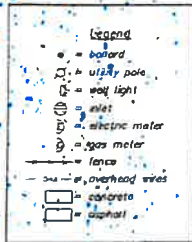 Legend
= bollard
= utility pole
= wall light
= inlet
= electric meter
= gas meter
= fence
= overhead wires
= concrete
= asphalt